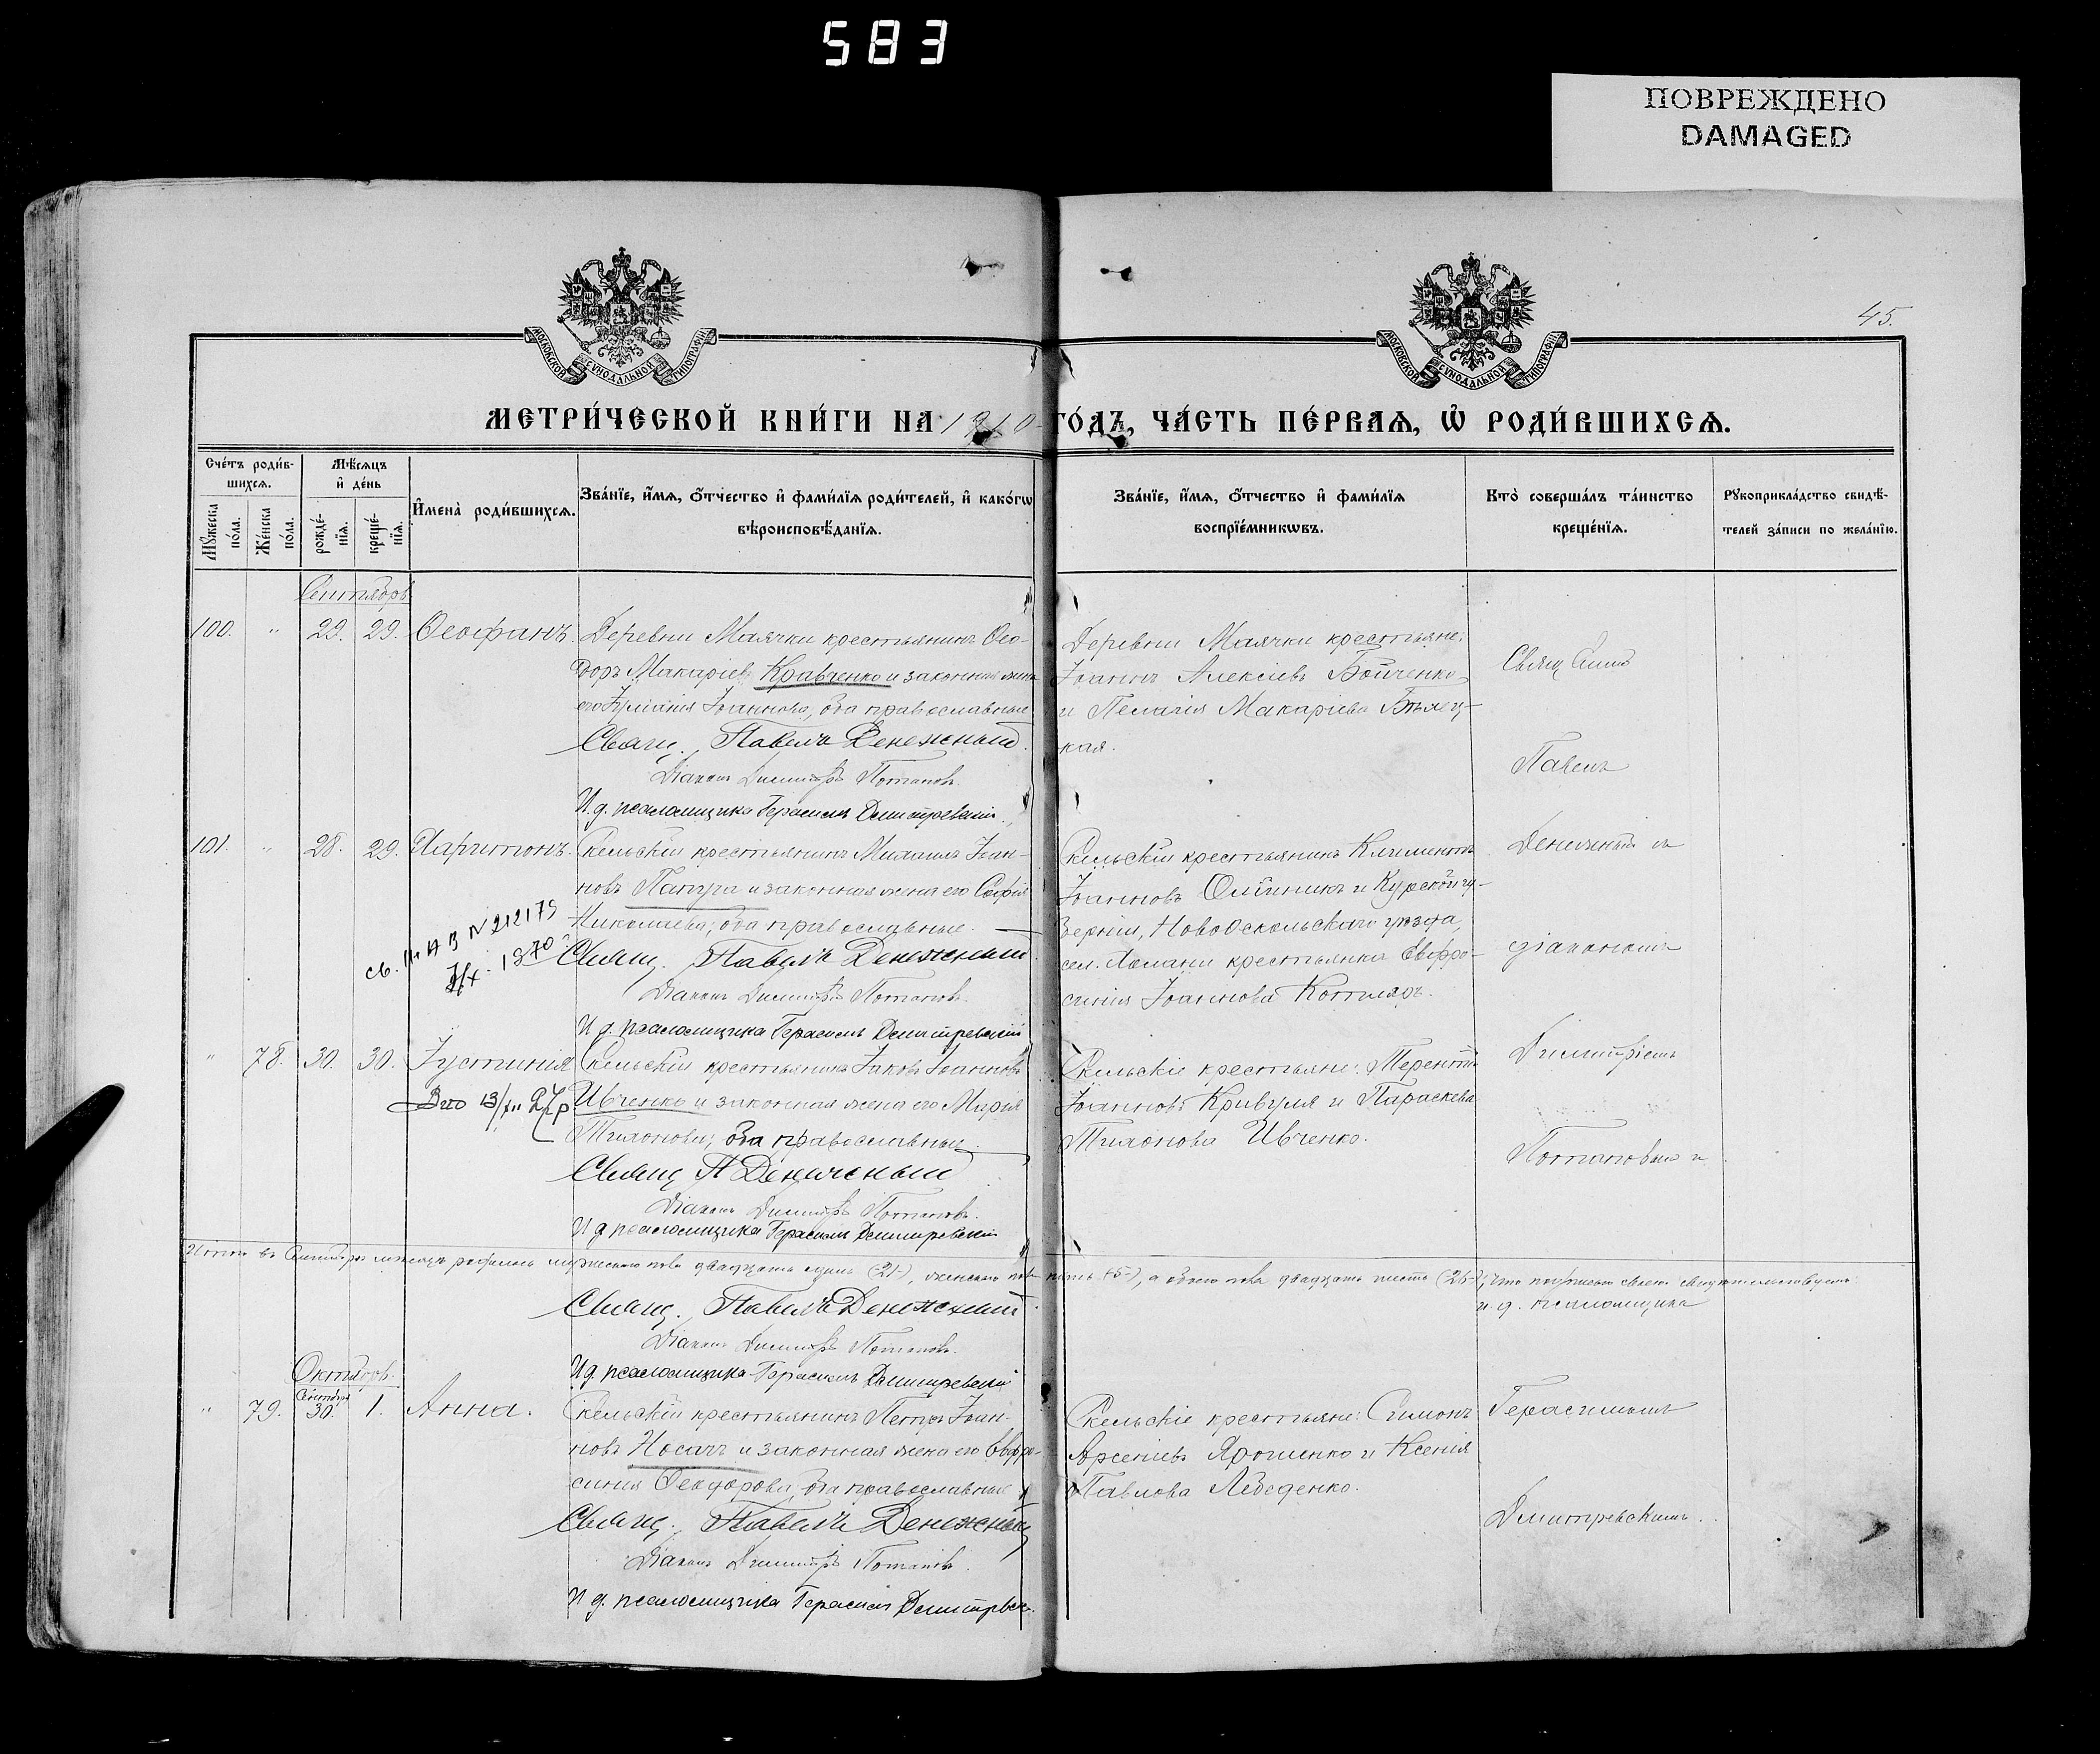 583
ПОВРЕЖДЕНО
DAMAGED
МОСКОВСКОЙ СѴНОДАЛЬНОЙ ТИПОГРАФІИ
МОСКОВСКОЙ СѴНОДАЛЬНОЙ ТИПОГРАФІИ
45.
МЕТРИ́ЧЕСКОЙ КНИ́ГИ НА 1910 ГО́ДЪ, ЧА́СТЬ ПЕ́РВАѦ, Ѽ РОДИ́ВШИХСѦ.
Сче́тъ роди́в-
шихсѧ.
Мꙋ́жеска по́ла.
Же́нска по́ла.
Мѣ́сѧцъ
и҆ де́нь
рожде́-
нїѧ.
креще́-
нїѧ.
И҆мена̀ роди́вшихсѧ.
Зва́нїе, и҆́мѧ, ѻ҆́тчество и҆ фами́лїѧ роди́телей, и҆ како́гѡ
вѣроисповѣ́данїѧ.
Зва́нїе, и҆́мѧ, ѻ҆́тчество и҆ фами́лїѧ
воспрїе́мникѡвъ.
Кто̀ соверша́лъ та́инство
креще́нїѧ.
Рꙋкоприкла́дство свидѣ́-
телей за́писи по жела́нїю.
Сентябрь
100. " 29. 29. Ѳеофанъ. Деревни Маячки крестьянинъ Ѳео-
доръ Макаріевъ Кравченко и законная жена
его Іоаннова, оба православные
Свящ. Павелъ Денежный.
Діаконъ Димитрій Потаповъ.
И. д. псаломщика Герасимъ Димитревскій.
Деревни Маячки крестьяне:
Іоаннъ Алексіевъ Бойченко
и Пелагія Макаріева Бѣлец-
кая.
Свящ
Павелъ
101. " 28. 29. Харитонъ. Скельскій крестьянинъ Михаилъ Іоан-
новъ Папура и законная жена его Софія
Николаева; оба православные.
Свящ. Павелъ Денежный
Діаконъ Димитрій Потаповъ.
И д. псаломщика Герасимъ Димитревскій
Св. N 212179
1970
Скельскій крестьянинъ Климентъ
Іоанновъ Олійникъ и Курской гу-
берніи, Новооскольскаго уѣзда,
сел. крестьянка Евфро-
синія Іоаннова Котляръ.
Денежный съ
діакономъ
" 78. 30. 30. Іустинія Скельскій крестьянинъ Іаковъ Іоанновъ
Ивченко и законная жена его Марія
Тихонова; оба православные.
Свящ П Денежный
Діаконъ Димитрій Потаповъ.
И д псаломщика Герасимъ Димитревскій
Скельскіе крестьяне: Терентій
Іоанновъ Кривуля и Параскева
Тихонова Ивченко.
Димитріемъ
Потаповымъ и
Итого въ Сентябрѣ мѣсяцѣ родилось мужескаго пола двадцать одинъ (21), женскаго пола пять (5), а обоего пола двадцать шесть (26), что подписью своею свидѣтельствуемъ
Свящ. Павелъ Денежный.
Діаконъ Димитрій Потаповъ.
И д. псаломщика Герасимъ Димитревскій
и. д. псаломщика
Октябрь.
Сентября
" 79. 30. 1. Анна. Скельскій крестьянинъ Петръ Іоан-
новъ Носачъ и законная жена его Евфро-
синія Ѳеодорова, оба православные
Свящ. Павелъ Денежный
Діаконъ Димитрій Потаповъ.
И д. псаломщика Герасимъ Димитревск.
Скельскіе крестьяне: Симонъ
Арсеніевъ Ярошенко и Ксенія
Павлова Лебеденко.
Герасимомъ
Димитревскимъ.